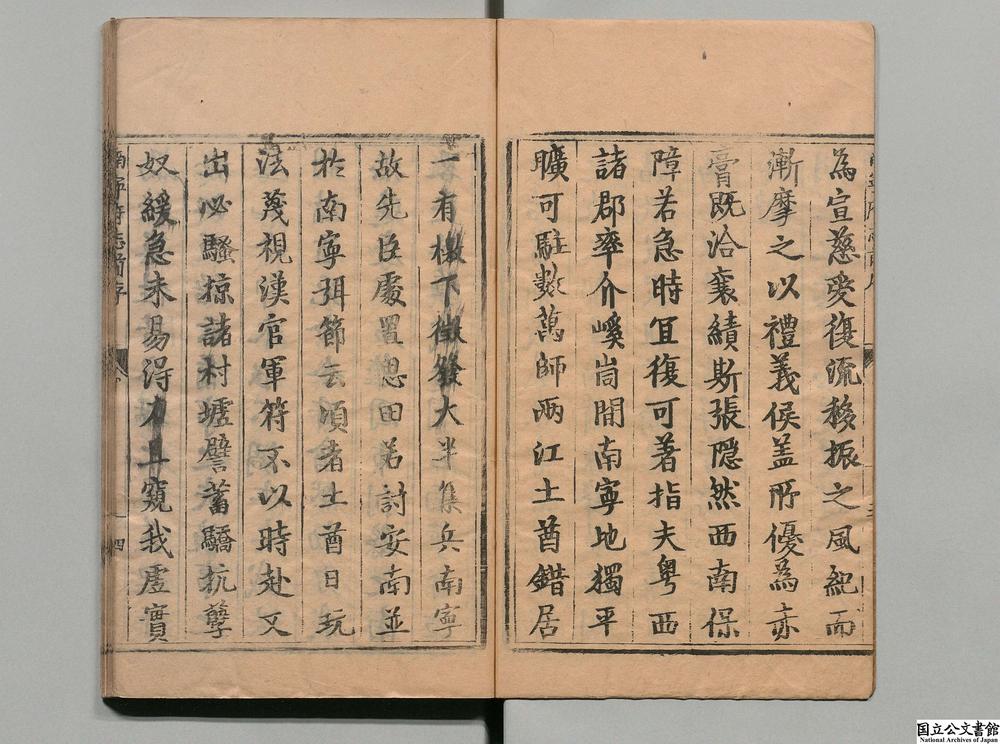 為宣慈愛復流移振之風紀而
漸摩之以禮義侯盖所優為亦
膏既洽襄績斯張隱然西南保
障若急時宜復可著指夫粤西
諸郡率介嵠峝間南寧地獨平
曠可駐數萬師兩江土酋錯居
一有檄下徵發大半集兵南寧
故先臣處置思田若討安南並
於南寧弭節云頃者土酋日玩
法蔑視漢官軍符不以時赴又
出必騷掠諸村墟譬蓄驕抗孽
奴緩急未易得力且窺我虛實
南寧府志 序
四
国立公文書館
National Archives of Japan